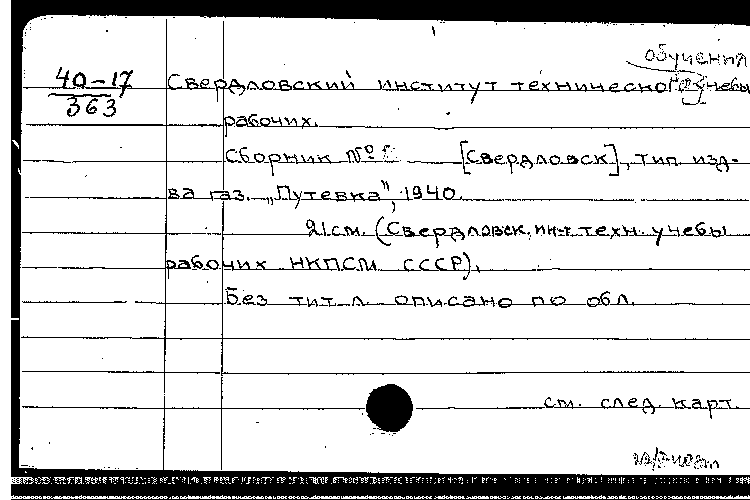 обучения
40-17
363
Свердловский институт технического учебы
рабочих.
Сборник №
[Свердловск], тип. изд-
ва газ. „Путевка", 1940.
21 см. (Свердловск. ин-т техн. учебы
рабочих НКПСМ СССР).
Без тит. л. описано по обл.
см. след. карт.